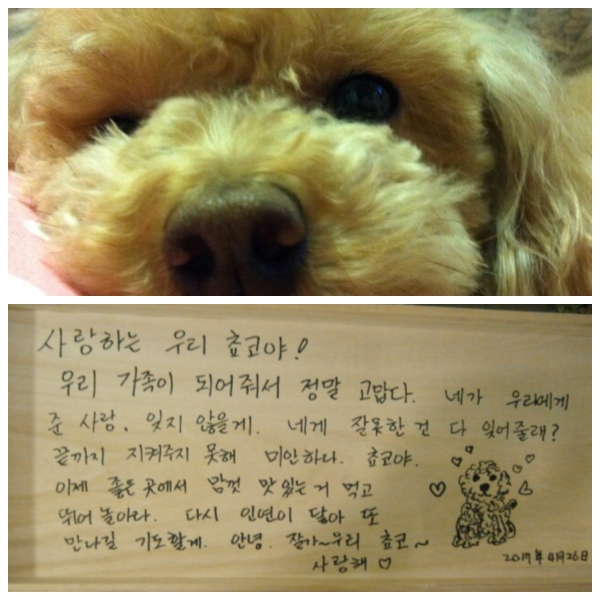 사랑하는 우리 쵸코야!
우리 가족이 되어줘서 정말 고맙다. 네가 우리에게
준 사랑, 잊지 않을게. 네게 잘못한 건 다 잊어줄래?
끝까지 지켜주지 못해 미안하다. 쵸코야.
이제 좋은 곳에서 맘껏 맛있는 거 먹고
뛰어 놀아라. 다시 인연이 닿아 또
만나길 기도할게. 안녕. 잘가~우리 쵸코~
사랑해 ♡
2017年 4月 26日